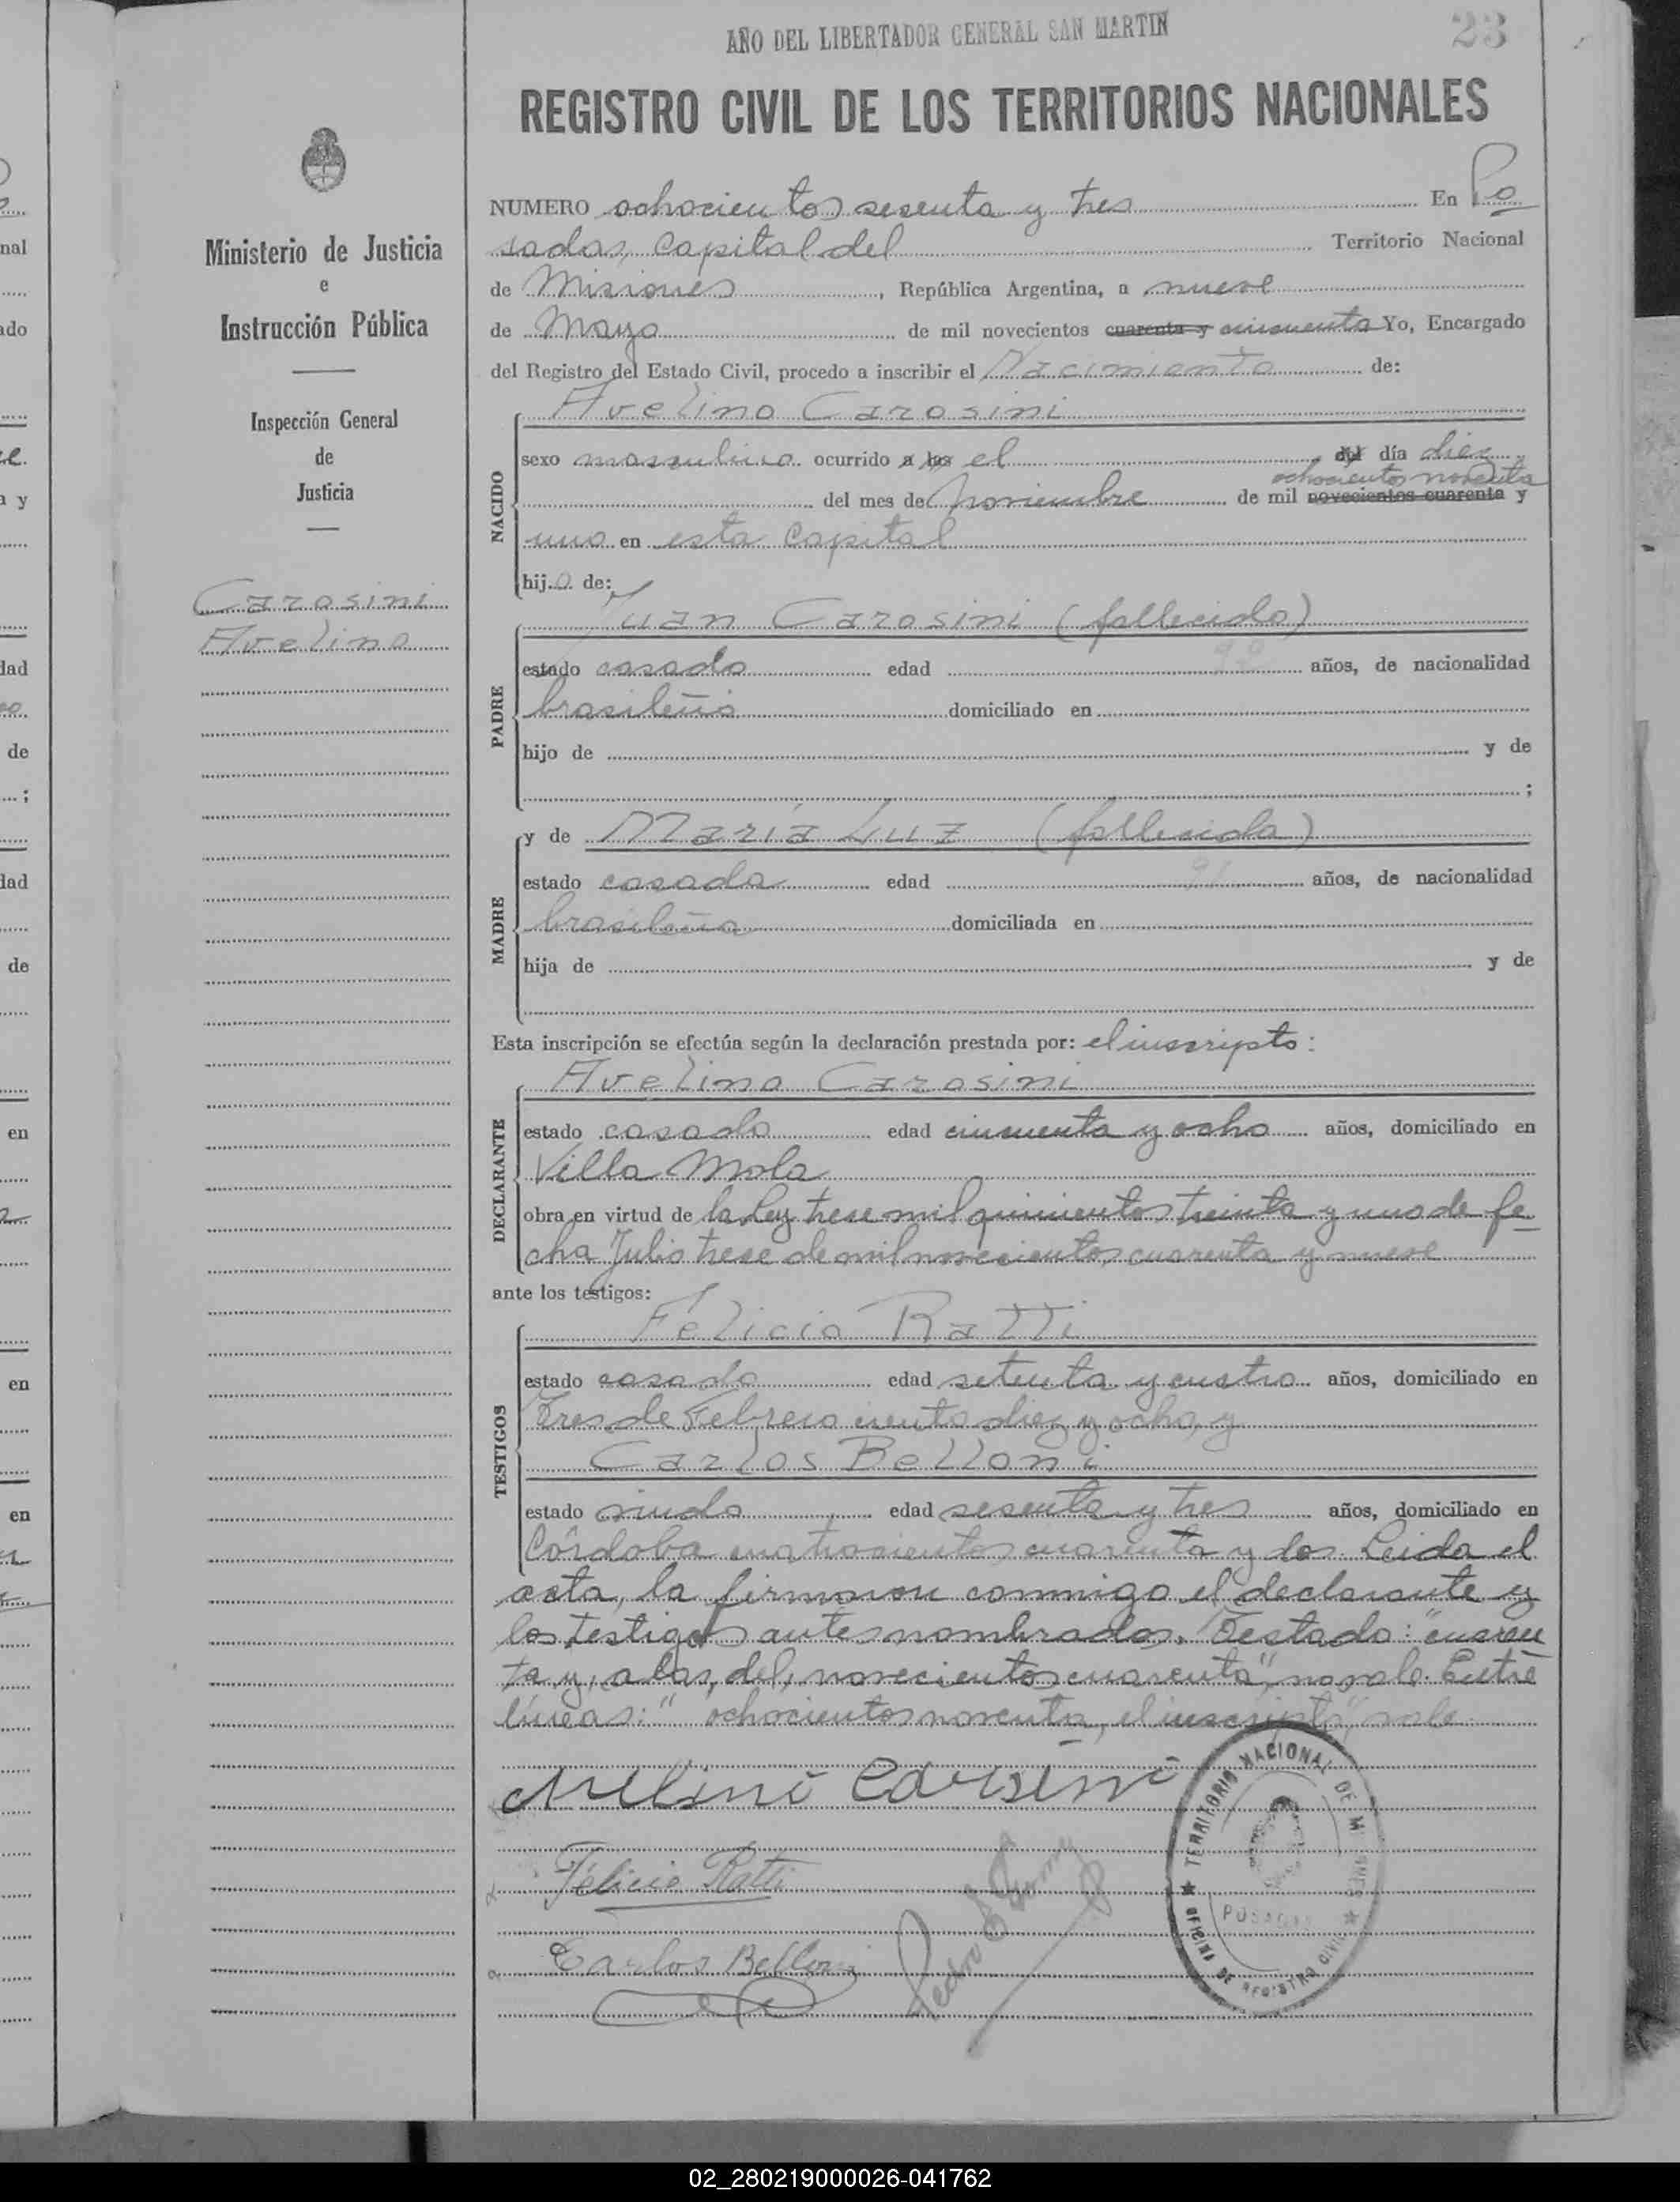 AÑO DEL LIBERTADOR GENERAL SAN MARTIN
23
REGISTRO CIVIL DE LOS TERRITORIOS NACIONALES
Ministerio de Justicia
e
Instrucción Pública
Inspección General
de
Justicia
Carosini
Avelino
NUMERO ochocientos sesenta y tres En Po
sadas, Capital del Territorio Nacional
de Misiones, República Argentina, a nueve
de Mayo de mil novecientos cuarenta y cincuenta Yo, Encargado
del Registro del Estado Civil, procedo a inscribir el Nacimiento de:
NACIDO
Avelino Carosini
sexo masculino ocurrido a las el del día diez
ochocientos noventa
del mes de noviembre de mil novecientos cuarenta y
uno en esta Capital
hijo de:
PADRE
Juan Carosini (fallecido)
estado casado edad 98 años, de nacionalidad
brasileño domiciliado en
hijo de y de
;
MADRE
y de María Luz (fallecida)
estado casada edad 91 años, de nacionalidad
brasileña domiciliada en
hija de y de
Esta inscripción se efectúa según la declaración prestada por: el inscripto:
DECLARANTE
Avelino Carosini
estado casado edad cincuenta y ocho años, domiciliado en
Villa Mola
obra en virtud de la Ley trece mil quinientos treinta y uno de fe
cha Julio trece de mil novecientos cuarenta y nueve
ante los testigos:
TESTIGOS
Felicio Ratti
estado casado edad setenta y cuatro años, domiciliado en
Tres de Febrero ciento diez y ocho, y
Carlos Belloni
estado viudo edad sesenta y tres años, domiciliado en
Córdoba cuatrocientos cuarenta y dos. Leida el
acta, la firmaron conmigo el declarante y
los testigos antes nombrados. Testado: "cuaren
ta y, a las, del, novecientos cuarenta", no vale. Entre
líneas: " ochocientos noventa, el inscripto", vale.
Avelino Carosini
Felicio Ratti
Carlos Belloni
TERRITORIO NACIONAL DE MISIONES
POSADAS
OFICINA DE REGISTRO CIVIL
02_280219000026-041762